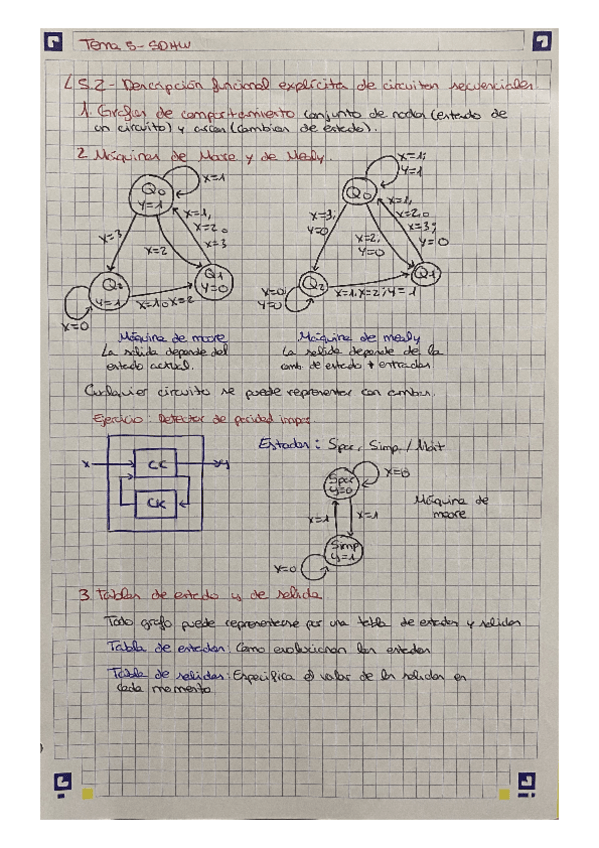 Tema 5 - SDHW
5.2 - Descripción funcional explícita de circuitos secuenciales
1. Grafos de comportamiento conjunto de nodos (estado de
un circuito) y arcos (cambios de estado).
2. Máquinas de Moore y de Mealy.
Q0
Y=1
X=1
X=3
X=2
X=1,
X=2 o
X=3
Q2
Y=1
Q1
Y=0
X=1 o X=2
X=0
Q0
X=1;
Y=1
X=3;
Y=0
X=2;
Y=0
X=1,
X=2 o
X=3;
Y=0
Q2
Q1
X=0;
Y=0
X=1, X=2; Y=1
Máquina de moore
La salida depende del
estado actual.
Máquina de mealy
La salida depende de la
comb. de estado + entradas
Cualquier circuito se puede representar con ambas.
Ejercicio: Detector de paridad impar.
X
CC
Y
CK
Estados: Spar, Simp /
Spar
Y=0
X=0
X=1
X=1
Simp
Y=1
X=0
Máquina de
moore
3. Tablas de estado y de salida
Todo grafo puede representarse por una tabla de estados y salidas
Tabla de estados: Como evolucionan los estados
Tabla de salidas: Especifica el valor de las salidas en
cada momento